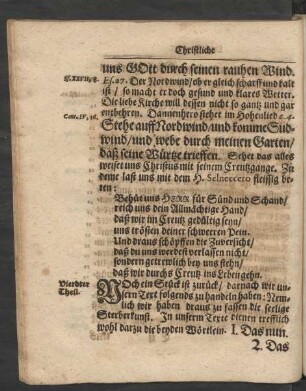 Christliche
uns GOtt durch seinen rauhen Wind.
Es. 27. Der Nordwind/ ob er gleich scharff und kalt
ist/ so macht er doch gesund und klares Wetter.
Die liebe Kirche will dessen nicht so gantz und gar
entbehren. Dannenhero stehet im Hohenlied c. 4.
Stehe auff Nordwind/ und komme Süd-
wind/ und webe durch meinen Garten/
daß seine Würtze trieffen. Sehet das alles
weiset uns Christus mit seinem Creutzgange. Zu
deme last uns mit dem H. Selneccero fleissig be-
ten:
Behüt uns HErr für Sünd und Schand/
reich uns dein Allmächtige Hand/
daß wir im Creutz gedültig seyn/
uns trösten deiner schweren Pein.
Und draus schöpffen die Zuversicht/
daß du uns werdest verlassen nicht/
sondern getrewlich bey uns stehn/
daß wir durchs Creutz ins Leben gehn.
Vierdter
Theil.
NOch ein Stück ist zurück/ darnach wir un-
sern Text folgends zu handeln haben: Nem-
lich wir haben draus zu fassen die seelige
Sterbekunst. In unserm Texte dienen trefflich
wohl darzu die beyden Wörtlein. I. Das nun.
2. Das